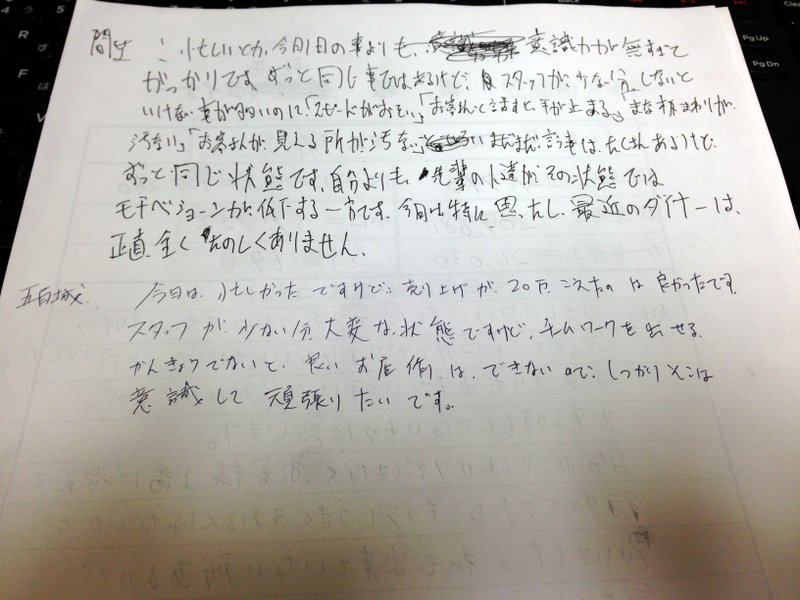 間生 : 忙しいとか、今日1日の事よりも、意識力が無すぎて
がっかりです。ずっと同じ事ではあるけど、スタッフが少ない分しないと
いけない事が多いのに「スピードがおそい」「お客さんと話すと、手が止まる」「まな板まわりが
汚ない」「お客さんが見える所が汚ない」まだまだ言う事は、たくさんあるけど、
ずっと同じ状態です。自分よりも、先輩の人達がその状態では
モチベーションが低下する一方です。今日は特に思ったし、最近のダイナーは、
正直全くたのしくありません。
五百城. 今日は、忙しかったですけど、売り上げが、20万こえたのは良かったです。
スタッフが少ない分、大変な状態ですけど、チームワークを出せる
かんきょうでないと、良いお店作りは、できないので、しっかりそこは
意識して頑張りたいです。
PgUp
PgDn